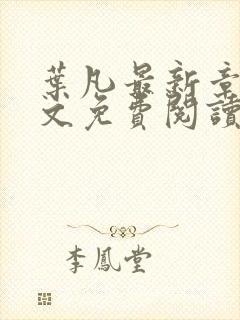 葉凡最新章
文免費閱讀
李鳳堂